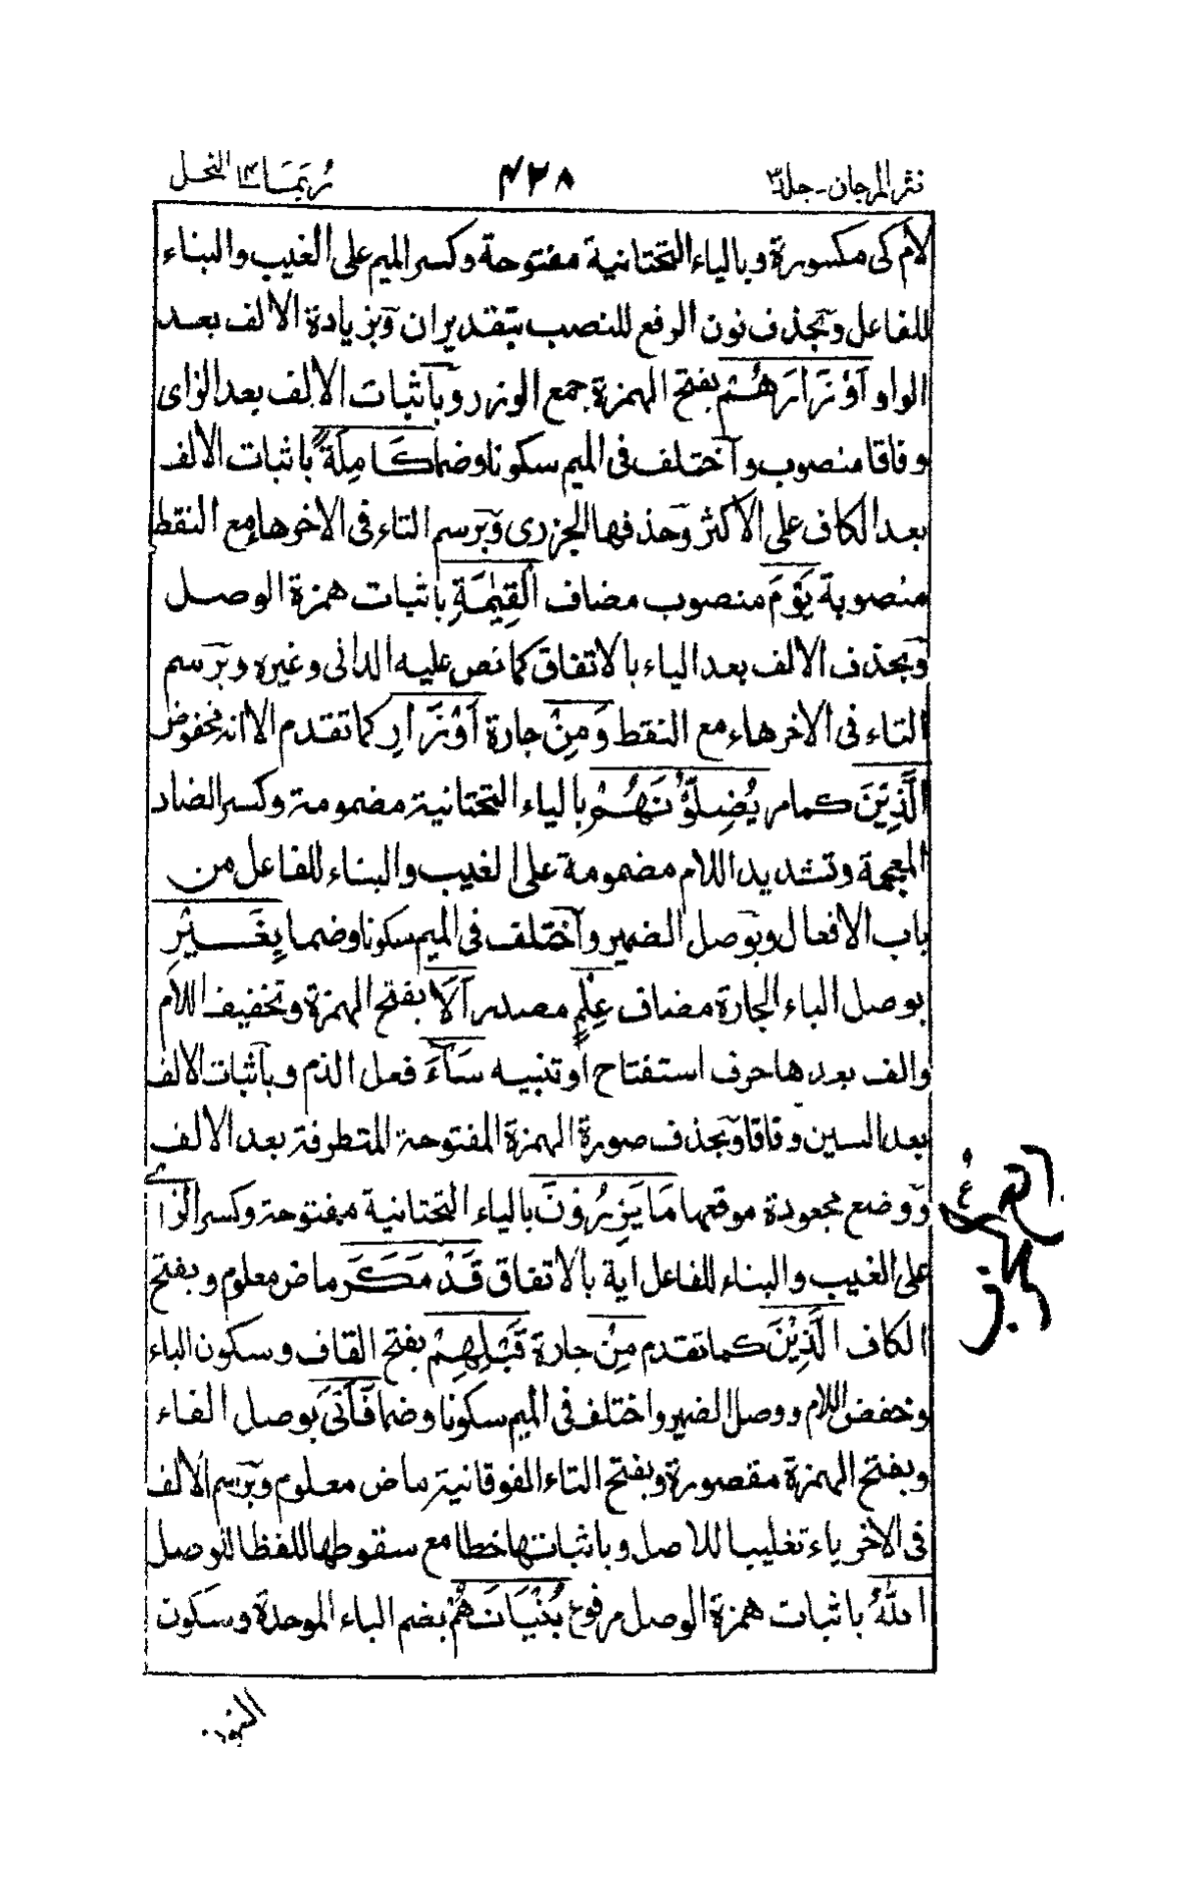 نثر المرجان - جلد٣
٤٢٨
رُبَمَا ١٤ النحل
لام كى مكسورة وبالياء التحتانية مفتوحة وكسر الميم على الغيب والبناء
للفاعل وبحذف نون الرفع للنصب بتقدير ان وبزيادة الالف بعد
الواو اَوْزَارَهُمْ بفتح الهمزة جمع الوزر وباثبات الالف بعد الزاى
وفاقا منصوب واختلف فى الميم سكونا وضما كَامِلَةً باثبات الالف
بعد الكاف على الاكثر وحذفها الجزرى وبرسم التاء فى الاخر هاء مع النقط
منصوبة يَوْمَ منصوب مضاف الْقِيٰمَةِ باثبات همزة الوصل
وبحذف الالف بعد الياء بالاتفاق كما نص عليه الدانى وغيره وبرسم
التاء فى الاخر هاء مع النقط وَمِنْ جارة اَوْزَارِ كما تقدم الا انه مخفوض
الَّذِيْنَ كما مر يُضِلُّوْنَهُمْ بالياء التحتانية مضمومة وكسر الضاد
المعجمة وتشديد اللام مضمومة على الغيب والبناء للفاعل من
باب الافعال وبوصل الضمير واختلف فى الميم سكونا وضما بِغَيْرِ
بوصل الباء الجارة مضاف عِلْمٍ مصدر اَلَا بفتح الهمزة وتخفيف اللام
والف بعدها حرف استفتاح او تنبيه سَآءَ فعل الذم وباثبات الالف
بعد السين وفاقا وبحذف صورة الهمزة المفتوحة المتطرفة بعد الالف
ووضع مجعودة موقعها مَا يَزِرُوْنَ بالياء التحتانية مفتوحة وكسر الزاى
على الغيب والبناء للفاعل اية بالاتفاق قَدْ مَكَرَ ماض معلوم وبفتح
الكاف الَّذِيْنَ كما تقدم مِنْ جارة قَبْلِهِمْ بفتح القاف وسكون الباء
وخفض اللام ووصل الضمير واختلف فى الميم سكونا وضما فَاَتَى بوصل الفاء
وبفتح الهمزة مقصورة وبفتح التاء الفوقانية ماض معلوم وبرسم الالف
فى الاخر ياء تغليبا للاصل وباثباتها خطا مع سقوطها للفظا للوصل
اللهُ باثبات همزة الوصل مرفوع بُنْيَانَهُمْ بضم الباء الموحدة وسكون
النون